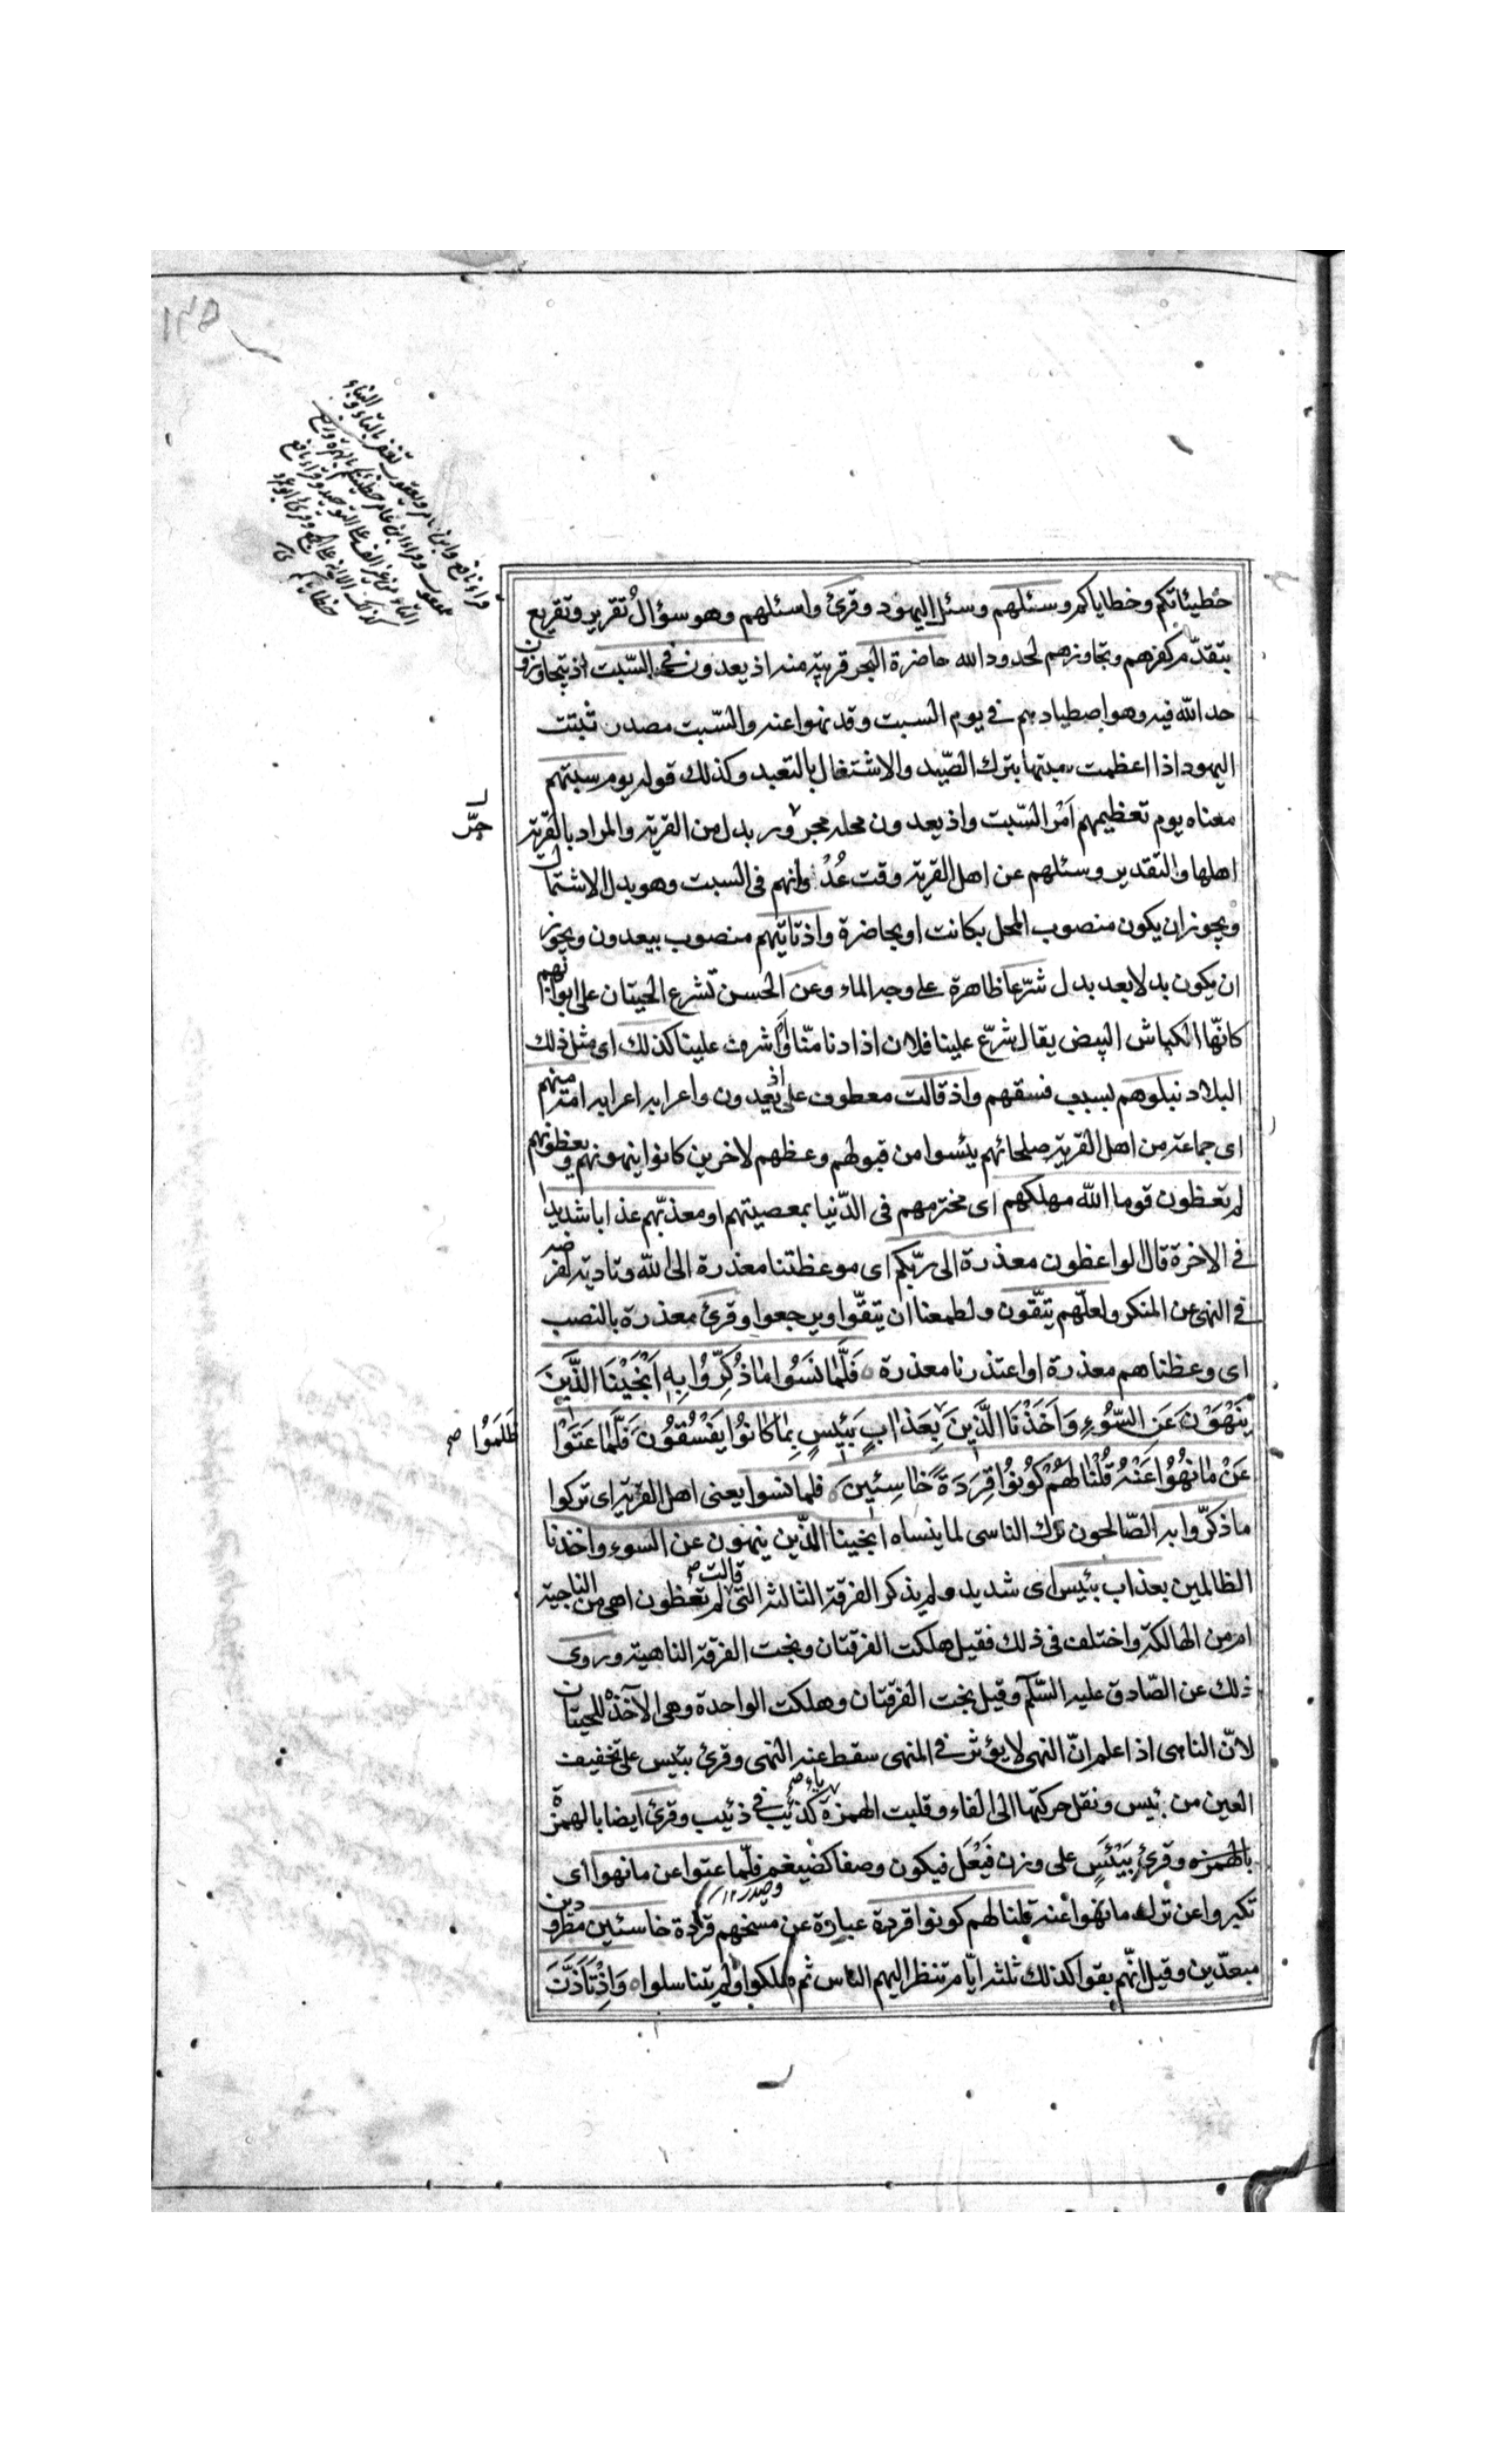 خطيئاتكم وخطاياكم وسئلهم وسئل اليهود وقرئ واسئلهم وهو سؤالُ تقرير وتقريع
بتقدّم كفرهم وتجاوزهم لحدود الله حاضرة البحر قريبة منه اذ يعدون في السّبت اذ يتجاوزون
حد الله فيه وهو اصطيادهم في يوم السبت وقد نهوا عنه والسّبت مصدر سبتت
اليهود اذا اعظمت سبتها بترك الصّيد والاشتغال بالتعبد وكذلك قوله يوم سبتهم
معناه يوم تعظيمهم اَمْر السّبت واذ يعدون محله مجرور بدل من القرية والمراد بالقرية
جرّ
اهلها والتقدير وسئلهم عن اهل القرية وقت عُدْوانهم فى السبت وهو بدل الاشتمال
ويجوز ان يكون منصوب المحل بكانت او بحاضرة واذ تاتيهم منصوب بيعدون ويجوز
ان يكون بدلا بعد بدل شرّعا ظاهرة على وجه الماء وعن الحسن تشرع الحيتان على ابوابهم
كانّها الكباش البيض يقال شرّع علينا فلان اذا دنا منّا واشرف علينا كذلك اى مثل ذلك
البلاء نبلوهم بسبب فسقهم واذ قالت معطوف على اذ يعدون واعرابه اعرابه امة منهم
اى جماعة من اهل القرية صلحائهم يئسوا من قبولهم وعظهم لاخرين كانوا ينهونهم ويعظونهم
لم تعظون قوما الله مهلكهم اى مخترمهم فى الدّنيا بمعصيتهم او معذّبهم عذابا شديدا
في الاخرة قال الواعظون معذرة الى ربّكم اى موعظتنا معذرة الى الله وتادية لفرضه
في النهى عن المنكر ولعلّهم يتّقون ولطمعنا ان يتقّوا ويرجعوا وقرئ معذرة بالنصب
اى وعظناهم معذرة او اعتذرنا معذرة ٥ فَلَمَّا نَسُوا مَا ذُكِّرُوا بِهٖ اَنْجَيْنَا الَّذِينَ
يَنْهَوْنَ عَنِ السُّوءِ وَاَخَذْنَا الَّذِينَ بِعَذَابٍ بَئِيسٍ بِمَا كَانُوا يَفْسُقُونَ فَلَمَّا عَتَوْا
ظَلَمُوا صح
عَنْ مَا نُهُوا عَنْهُ قُلْنَا لَهُمْ كُونُوا قِرَدَةً خَاسِئِينَ ٥ فلما نسوا يعنى اهل القرية اى تركوا
ما ذكّروا به الصّالحون ترك الناسى لما ينساه انجينا الذّين ينهون عن السوء واخذنا
الظالمين بعذاب بئيس اى شديد ولم يذكر الفرقة الثالثة التى قالت صح لم تعظون اهى من الناجية
ام من الهالكة واختلف فى ذلك فقيل هلكت الفرقتان ونجت الفرقة الناهية وروى
ذلك عن الصّادق عليه السّلم وقيل نجت الفرقتان وهلكت الواحدة وهى الآخذة للحيتان
لانّ الناهى اذا علم انّ النهى لا يؤثر في المنهى سقط عنه النهى وقرئ بئيس على تخفيف
العين من بئيس ونقل حركتها الى الفاء وقلبت الهمزة ياء صح كذئيب في ذئب وقرئ ايضا بالهمزة
بالهمزه وقرئ بَيْئَسٍ على وزن فَيْعَل فيكون وصفا كضيغم فلّما عتوا عن ما نهوا اى
تكبروا عن ترك ما نهوا عنه قلنا لهم كونوا قردة عبارة عن مسخهم قردة خاسئين مطرودين
مبعدّين وقيل انّهم بقوا كذلك ثلثة ايّام تنظر اليهم الناس ثم هلكوا ولم يتناسلوا ٥ وَاِذْ تَاَذَّنَ